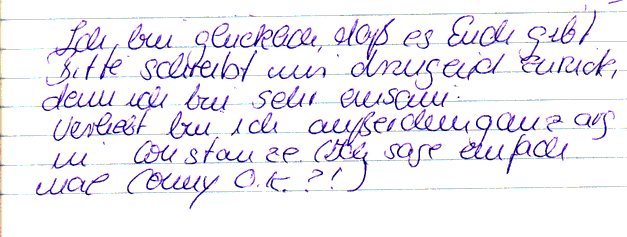 Ich, bin glücklich, daß es Euch gibt
Bitte schreibt mir dringend zurück,
denn ich bin sehr einsam.
Verliebt bin ich außerdem ganz arg
in Constanze (Ich sage einfach
mal Conny O.K.?!)